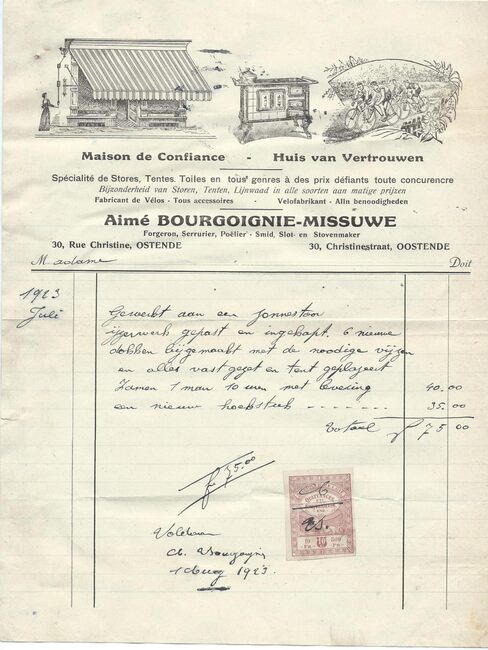 Maison de Confiance - Huis van Vertrouwen
Spécialité de Stores, Tentes. Toiles en tous genres à des prix défiants toute concurence
Bijzonderheid van Storen, Tenten, Lijnwaad in alle soorten aan matige prijzen
Fabricant de Vélos - Tous accessoires - Velofabrikant - Alln benoodigheden
Aimé BOURGOIGNIE-MISSUWE
Forgeron, Serrurier, Poêlier - Smid, Slot- en Stovenmaker
30, Rue Christine, OSTENDE 30, Christinestraat, OOSTENDE
Madame Doit
1923
Juli
Gewerkt aan een zonnestoor
ijzerwerk gepast en ingekapt. 6 nieuwe
dobben bijgemaakt met de noodige vijzen
en alles vast gezet en tent geplazeert
Zamen 1 man 10 uren met levering 40.00
een nieuw hoekstuk - - - - - - 35.00
Totaal fr 75 00
fr 75.00
10 Fr.
Voldaan
A. Bourgoignie
1 Aug 1923